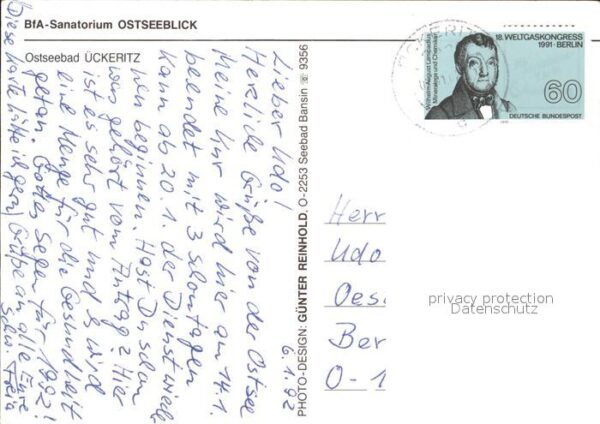 BfA-Sanatorium OSTSEEBLICK
Ostseebad ÜCKERITZ
18. WELTGASKONGRESS
1991 · BERLIN
Wilhelm August Lampadius
Mineraloge und Chemiker
60
DEUTSCHE BUNDESPOST
PHOTO-DESIGN: GÜNTER REINHOLD, O-2253 Seebad Bansin ☏ 9356
6.1.92
Lieber Udo!
Herzliche Grüße von der Ostsee
Meine Kur wird hier am 14.1.
beendet mit 3 schontagen
kann ab 20.1. der Dienst wie
der beginnen. Hast Du schon
was gehört vom Antrag? Hier
ist es sehr gut und es wird
eine Menge für die Gesundheit
getan. Gottes Segen für 1992!
Diese Karte hätte ilgern Grüße an alle Eure
Schw.
Herr
Udo
Oes
Ber
O-1
privacy protection
Datenschutz